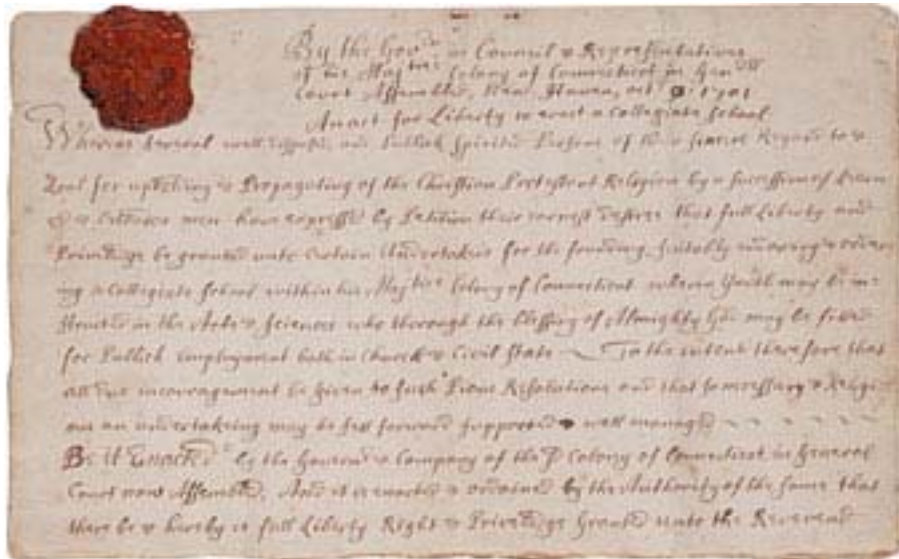 By the Govrn in Council & Representatives
of his Majties Colony of Connecticut in Genrll
Court Assembled, New Haven, Oct 9. 1701
An act for Liberty to erect a Collegiate School
Whereas Several well disposed and Publick Spirited Persons of their sincere Regard to &
Zeal for upholding & Propagating of the Christian Protestant Religion by a succession of Learn
ed & Orthodox men have expressed by Petition their earnest desires that full Liberty and
Priviledge be granted unto Certain Undertakers for the founding, suitably endowing & order
ing a Collegiate School within his Majties Colony of Connecticut wherein Youth may be in
structed in the Arts & Sciences who thorough the blessing of Almighty God may be fitted
for Publick employment both in Church & Civil State To the intent therefore that
all due incouragement be Given to such Pious Resolutions and that so necessary & Religi
ous an undertaking may be sett forward supported & well managed
Be it Enacted by the Governd & Company of the sd Colony of Connecticut in General
Court now Assembled, And it is enacted & ordained by the Authority of the same that
there be & hereby is full Liberty Right & Priviledge Granted unto the Reverend